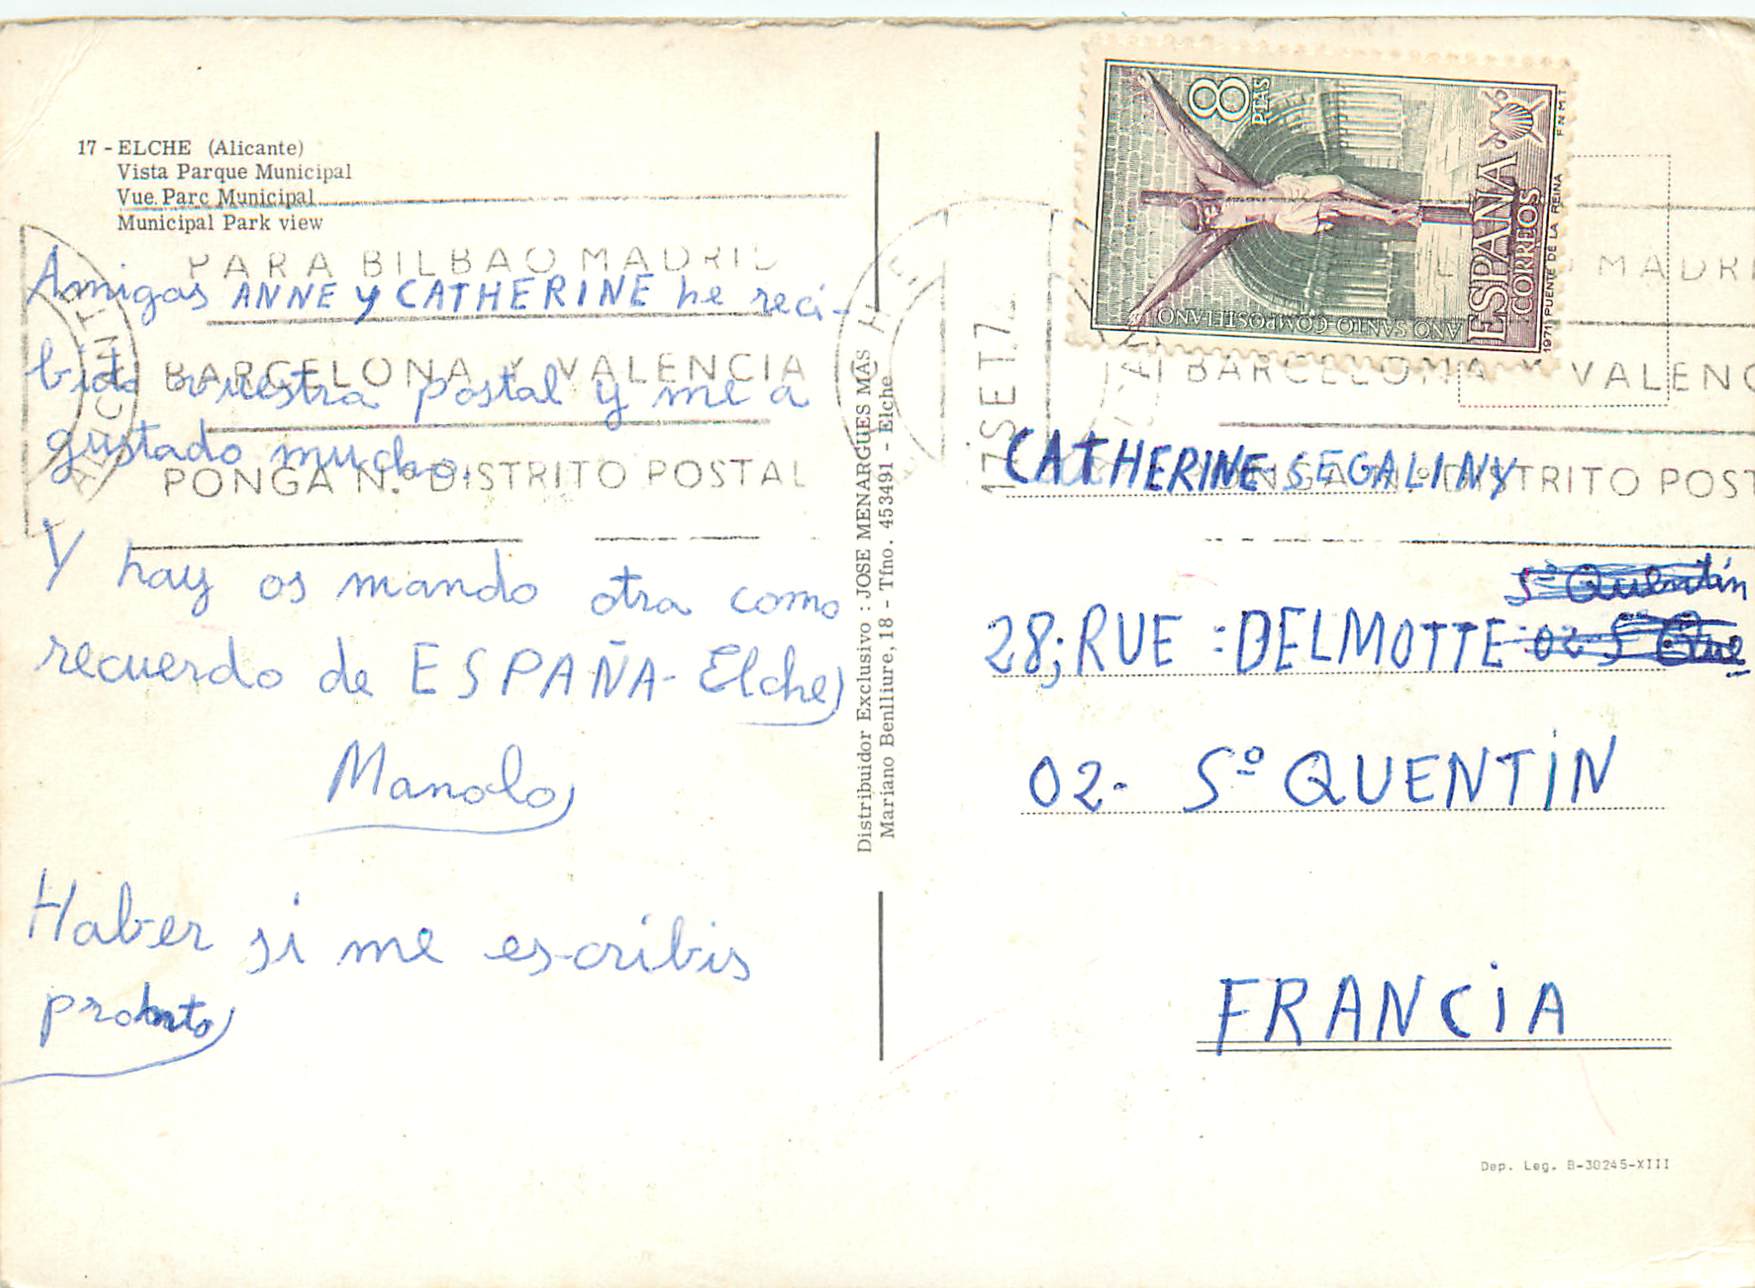 17 - ELCHE (Alicante)
Vista Parque Municipal
Vue Parc Municipal
Municipal Park view
PARA BILBAO MADRID
BARCELONA Y VALENCIA
PONGA N.º DISTRITO POSTAL
Amigas ANNE y CATHERINE he reci-
bido vuestra postal y me a
gustado mucho.
Y hay os mando otra como
recuerdo de ESPAÑA - Elche
Manolo
Haber si me escribis
pronto
Distribuidor Exclusivo : JOSE MENARGUES MAS
Mariano Benlliure, 18 - Tfno. 453491 - Elche
ELCHE
17 SET 7
8 PTAS
ESPAÑA
CORREOS
AÑO SANTO COMPOSTELANO
1971 PUENTE DE LA REINA F.N.M.T.
MADRI
BARCELONA Y VALENC
DISTRITO POST
CATHERINE SEGALINY
Sº Quentin
28; RUE : DELMOTTE 02-Sº Que
02- Sº QUENTIN
FRANCIA
Dep. Leg. B-30245-XIII